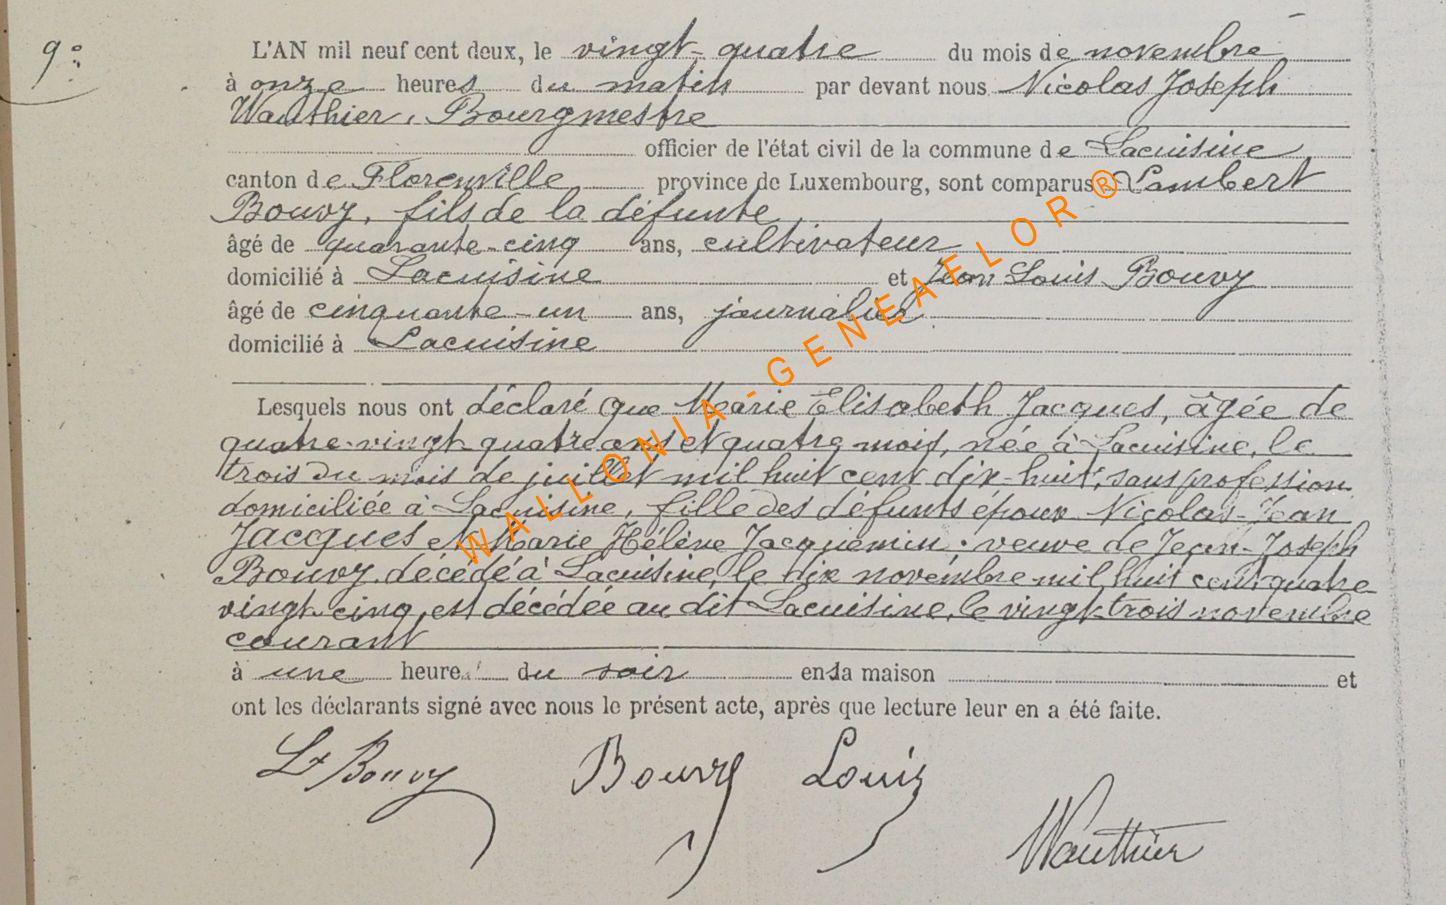 9°
L'AN mil neuf cent deux, le vingt-quatre du mois de novembre
à onze heures du matin par devant nous Nicolas Joseph
Wauthier, Bourgmestre
officier de l'état civil de la commune de Lacuisine
canton de Florenville province de Luxembourg, sont comparus Lambert
Bouvy, fils de la défunte,
âgé de quarante-cinq ans, cultivateur
domicilié à Lacuisine et Jean Louis Bouvy
âgé de cinquante-un ans, journalier
domicilié à Lacuisine
Lesquels nous ont déclaré que Marie Elisabeth Jacques, âgée de
quatre-vingt-quatre ans et quatre mois, née à Lacuisine, le
trois du mois de juillet mil huit cent dix-huit, sans profession
domiciliée à Lacuisine, fille des défunts époux Nicolas-Jean
Jacques et Marie Hélène Jacquemin; veuve de Jean-Joseph
Bouvy, décédé à Lacuisine, le dix novembre mil huit cent quatre-
vingt-cinq, est décédée au dit Lacuisine, le vingt-trois novembre
courant
à une heure du soir en la maison et
ont les déclarants signé avec nous le présent acte, après que lecture leur en a été faite.
Lt Bouvy Bouvy Louis
Wauthier
WALLONIA-GENEAELOR®